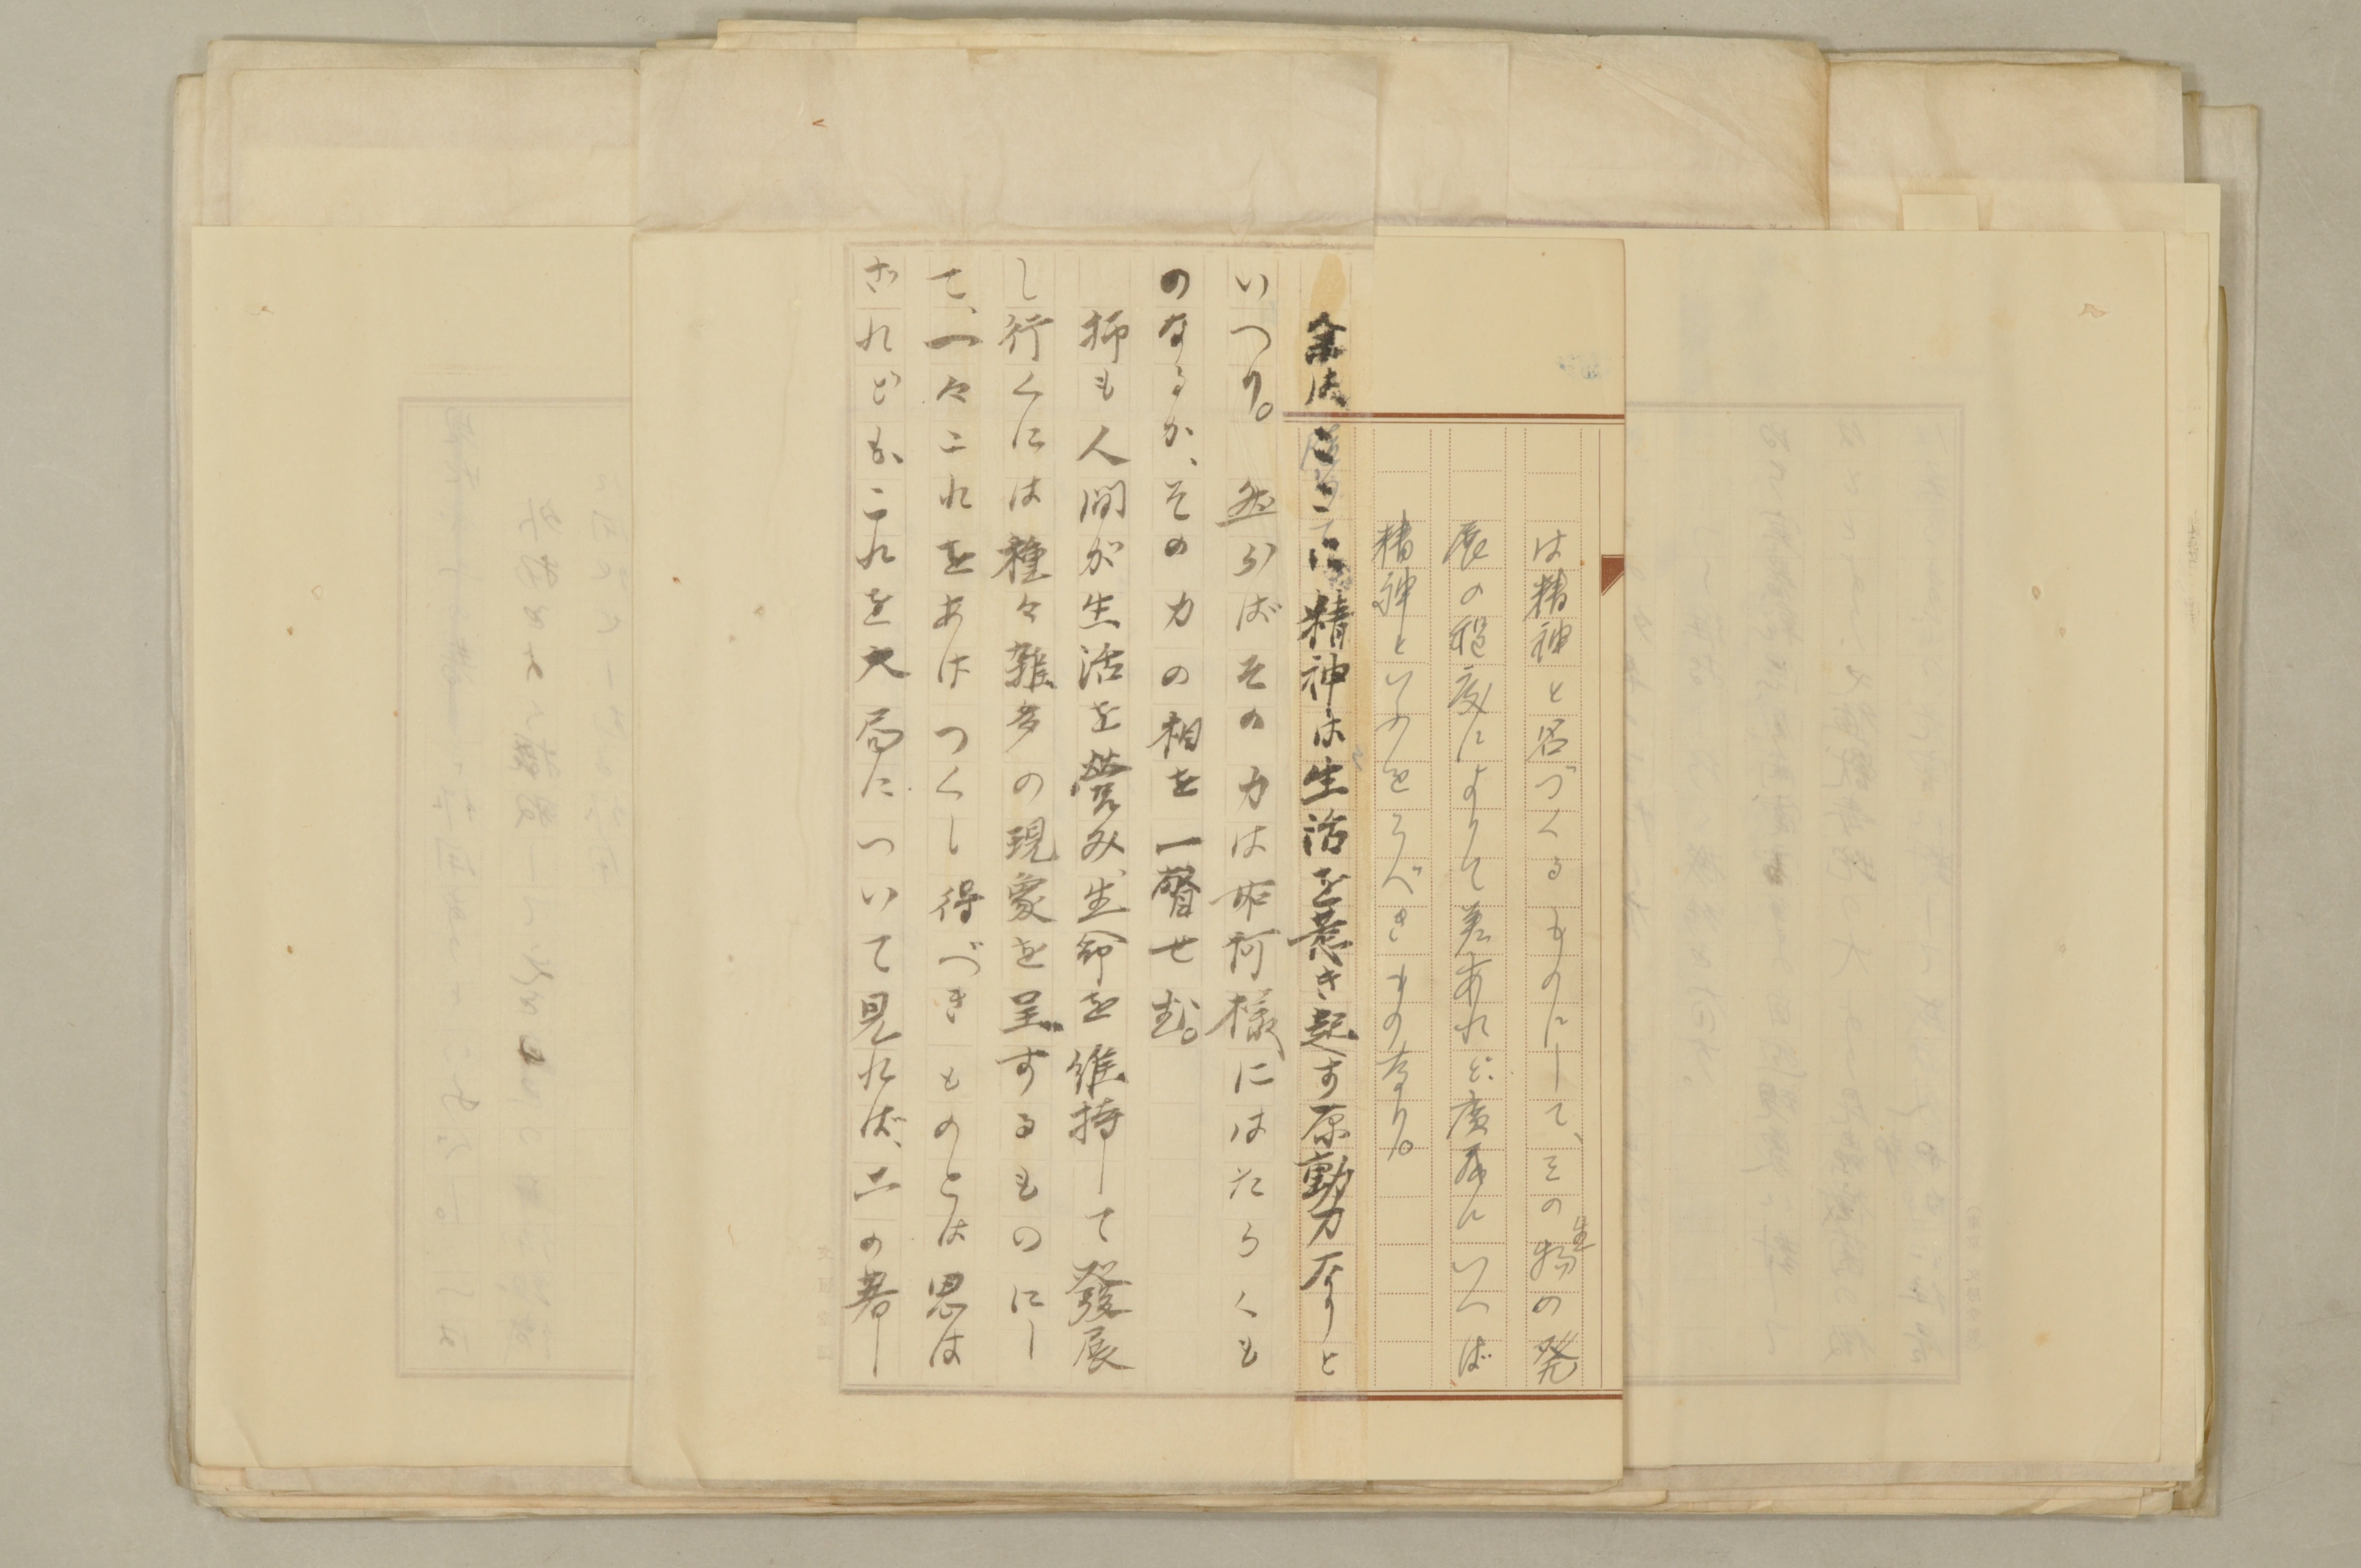 は精神と名づくるものにして、その生物の発
展の程度によりて差あれど、広義にいへば
精神といふをうべきものなり。
余はこゝに精神は生活を惹き起す原動力なりと
いつり。然らばその力は如何様にはたらくも
のなるか、その力の相を一瞥せむ。
抑も人間が生活を営み、生命を維持して發展
し行くには種々雑多の現象を呈するものにし
て、一々これをあはつくし得べきものとは思は
ざれども、これを大局について見れば、二の著し